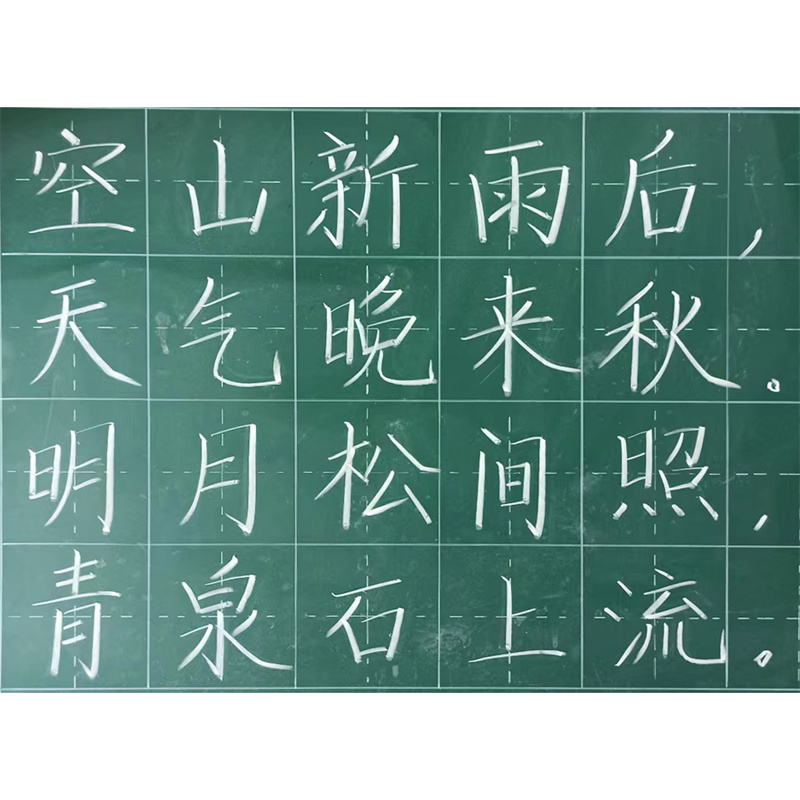 空山新雨后，
天气晚来秋。
明月松间照，
青泉石上流。